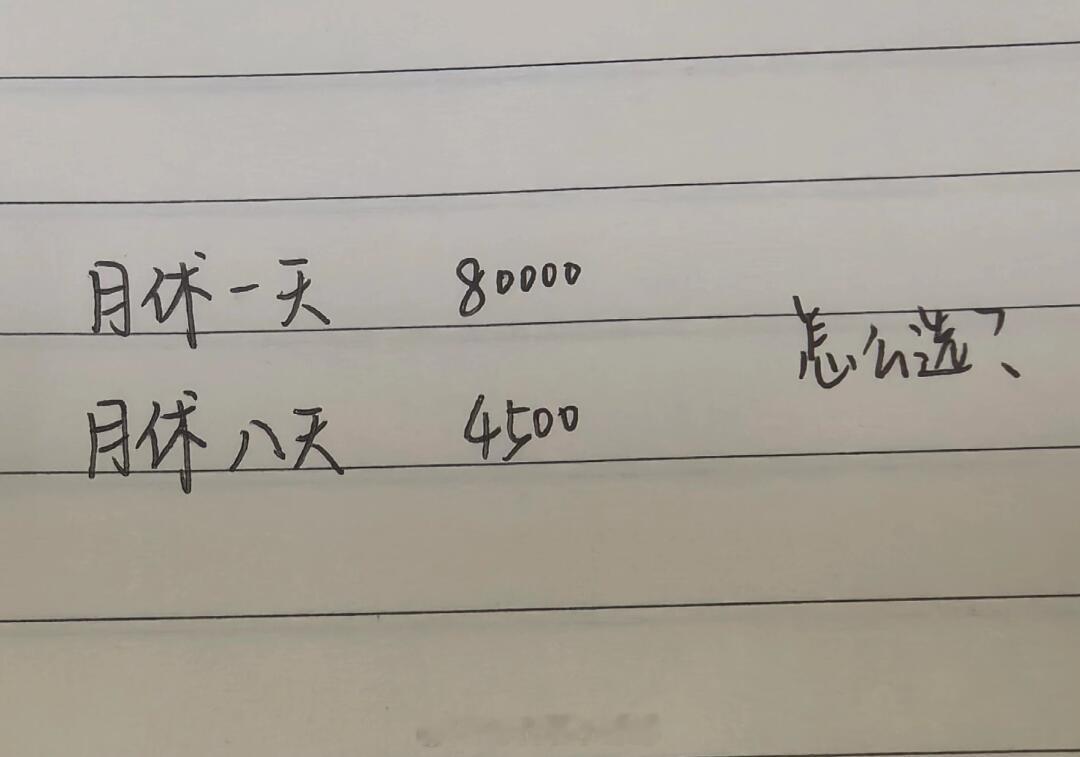 月休一天 80000
怎么选?
月休八天 4500